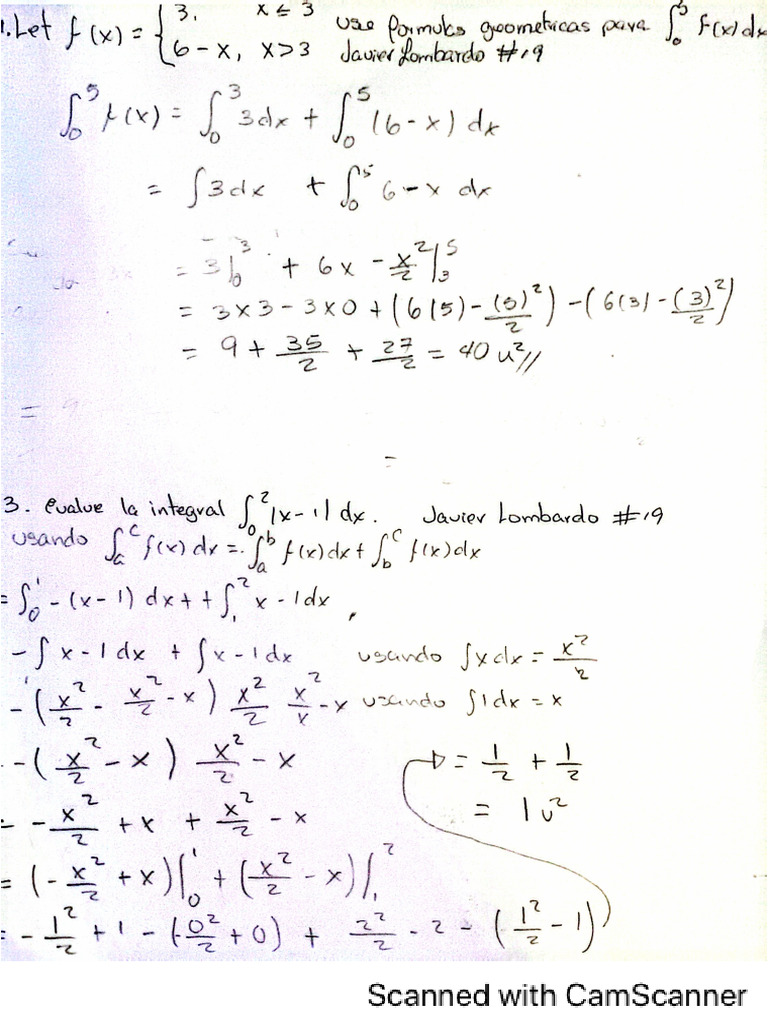 1. Let f(x) = { 3, x ≤ 3
6 - x, x > 3 use formulas geometricas para ∫₀³ f(x) dx
Javier Lombardo #19
∫₀⁵ f(x) = ∫₀³ 3dx + ∫₀⁵ (6 - x) dx
= ∫ 3dx + ∫₀⁵ 6 - x dx
= 3|₀³ + 6x - x²/2 |₃⁵
= 3 x 3 - 3 x 0 + (6(5) - (5)²/2) - (6(3) - (3)²/2)
= 9 + 35/2 + 27/2 = 40 u²//
= 9
=
3. evalue la integral ∫₀² |x - 1| dx. Javier Lombardo #19
usando ∫ₐᶜ f(x) dx = ∫ₐᵇ f(x) dx + ∫ᵇᶜ f(x) dx
= ∫₀¹ - (x - 1) dx + + ∫₁² x - 1 dx
- ∫ x - 1 dx + ∫ x - 1 dx usando ∫ x dx = x²/2
- (x²/2 - x²/2 - x) x²/2 x²/x - x usando ∫ 1 dx = x
- (x²/2 - x) x²/2 - x = 1/2 + 1/2
- x²/2 + x + x²/2 - x = 1 u²
= (- x²/2 + x)|₀¹ + (x²/2 - x)|₁²
= - 1²/2 + 1 - (-0²/2 + 0) + 2²/2 - 2 - (1²/2 - 1)
Scanned with CamScanner